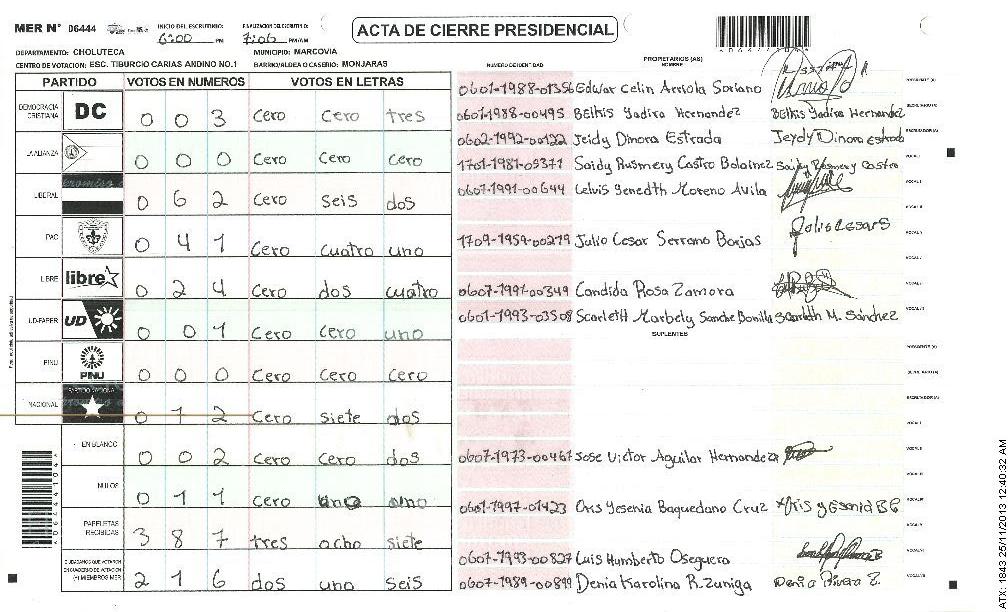 MER N° 06444
INICIO DEL ESCRUTINIO: 6:00 PM
FINALIZACION DEL ESCRUTINIO: 7:06 PM/AM
ACTA DE CIERRE PRESIDENCIAL
DEPARTAMENTO: CHOLUTECA
MUNICIPIO: MARCOVIA
CENTRO DE VOTACION: ESC. TIBURCIO CARIAS ANDINO NO.1
BARRIO/ALDEA O CASERIO: MONJARAS
NUMERO DE IDENTIDAD
PROPIETARIOS (AS)
NOMBRE
PARTIDO VOTOS EN NUMEROS VOTOS EN LETRAS
DEMOCRACIA CRISTIANA DC 0 0 3 Cero Cero tres
LA ALIANZA 0 0 0 Cero Cero Cero
LIBERAL 0 6 2 Cero seis dos
PAC 0 4 1 Cero cuatro uno
LIBRE libre 0 2 4 Cero dos cuatro
UD-FAPER UD 0 0 1 Cero Cero uno
PINU PINU 0 0 0 Cero Cero Cero
NACIONAL PARTIDO NACIONAL 0 7 2 Cero siete dos
EN BLANCO 0 0 2 Cero Cero dos
NULOS 0 1 1 Cero uno uno
PAPELETAS RECIBIDAS 3 8 7 tres ocho siete
CIUDADANOS QUE VOTARON EN CUADERNO DE VOTACION (+) MIEMBROS MER 2 1 6 dos uno seis
0601-1988-01356 Edwar Celin Arriola Soriano
0601-1988-00495 Belkis Yadira Hernandez Belkis Yadira Hernandez
0602-1992-00122 Jeidy Dinora Estrada Jeydy Dinora Estrada
1701-1981-05371 Saidy Rusmery Castro Bolainez
0607-1991-00644 Celvis Benedth Moreno Avila
1709-1959-00219 Julio Cesar Serrano Borjas Julio Cesar S
0607-1991-00349 Candida Rosa Zamora
0601-1993-03508 Scarleth Marbely Sanche Bonilla Scarleth M. Sánchez
SUPLENTES
0607-1973-00467 Jose Victor Aguilar Hernandez
0601-1997-01423 Oris Yesenia Baquedano Cruz
0607-1993-00827 Luis Humberto Oseguera
0607-1989-00899 Denia Karolina R. Zuniga Denia Rivera Z.
ATX: 1943 25/11/2013 12:40:32 AM